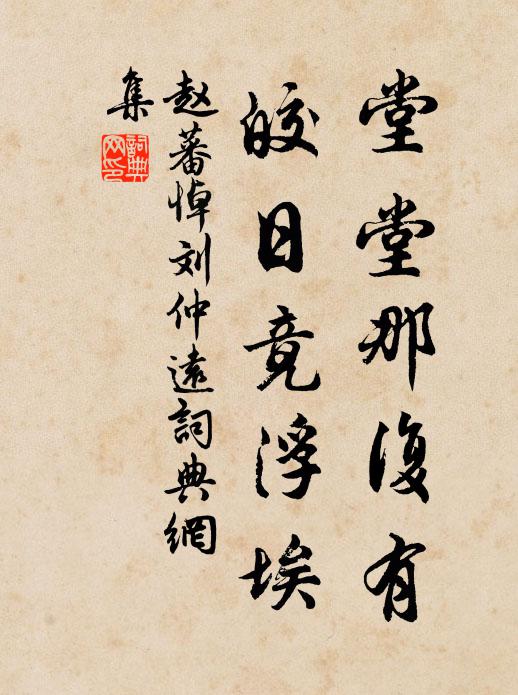 堂堂那復有
皎日竟浮埃
赵蕃悼刘仲遠詞典網
集
詞典网印